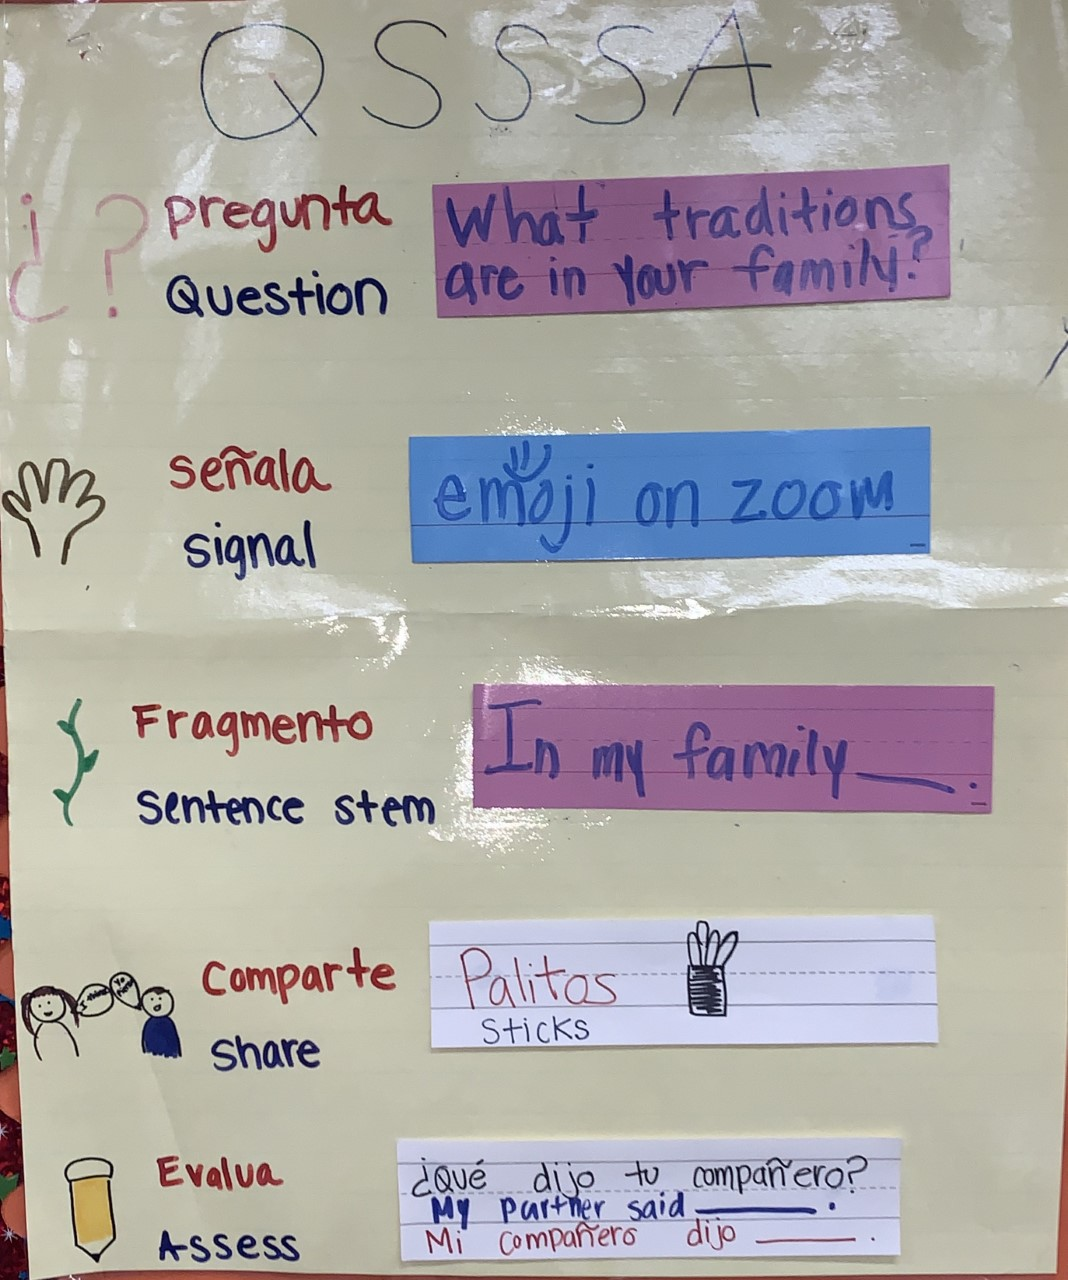 QSSSA
¿ ? pregunta
Question
What traditions
are in your family?
señala
signal
emoji on zoom
Fragmento
sentence stem
In my family ____.
Comparte
share
Palitos
sticks
Evalua
Assess
¿Qué dijo tu compañero?
My partner said ____.
Mi compañero dijo ____.